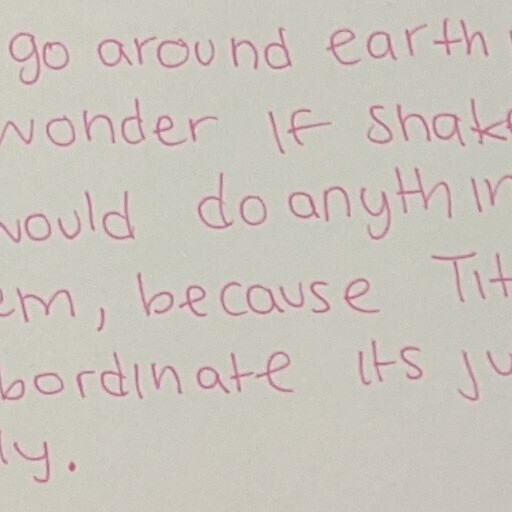 go around earth
wonder If shak
would do anythin
em, because Tit
bordinate its ju
ly.